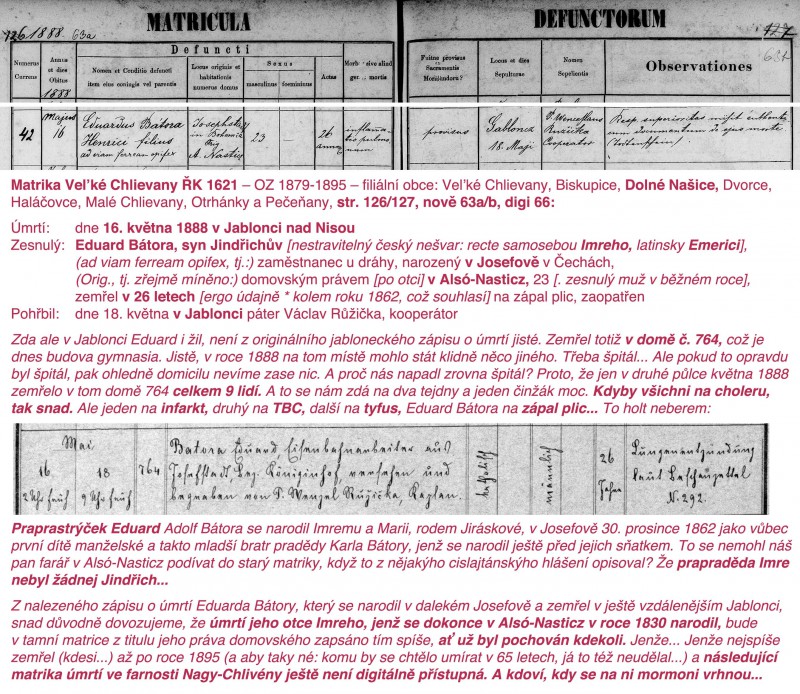 126 1888. 63a
MATRICULA
DEFUNCTORUM
127
63b
Numerus Currens
Annus et dies Obitus 1888
Defuncti
Nomen et Conditio defuncti item eius coniugis vel parentis
Locus originis et habitationis numerus domus
Sexus
masculinus
foemininus
Aetas
Morbus sive aliud genus mortis
Fuitne provisus Sacramentis Moriendorum?
Locus et dies Sepulturae
Nomen Sepelientis
Observationes
42
Majus 16
Eduardus Bátora
Henrici filius
ad viam ferream opifex
Josephstadt
in Bohemia
Orig.
A. Nasticz
23
26 anno
inflama-
tio pulmo-
num
provisus
Gablonca
18. Maji
P. Wenceslaus
Ružička
Cooperator
Resp. superioritas misit authenti-
cum documentum de ejus morte
Matrika Veľké Chlievany ŘK 1621 – OZ 1879-1895 – filiální obce: Veľké Chlievany, Biskupice, Dolné Našice, Dvorce,
Haláčovce, Malé Chlievany, Otrhánky a Pečeňany, str. 126/127, nově 63a/b, digi 66:
Úmrtí: dne 16. května 1888 v Jablonci nad Nisou
Zesnulý: Eduard Bátora, syn Jindřichův [nestravitelný český nešvar: recte samosebou Imreho, latinsky Emerici],
(ad viam ferream opifex, tj.:) zaměstnanec u dráhy, narozený v Josefově v Čechách,
(Orig., tj. zřejmě míněno:) domovským právem [po otci] v Alsó-Nasticz, 23 [. zesnulý muž v běžném roce],
zemřel v 26 letech [ergo údajně * kolem roku 1862, což souhlasí] na zápal plic, zaopatřen
Pohřbil: dne 18. května v Jablonci páter Václav Růžička, kooperátor
Zda ale v Jablonci Eduard i žil, není z originálního jabloneckého zápisu o úmrtí jisté. Zemřel totiž v domě č. 764, což je
dnes budova gymnasia. Jistě, v roce 1888 na tom místě mohlo stát klidně něco jiného. Třeba špitál... Ale pokud to opravdu
byl špitál, pak ohledně domicilu nevíme zase nic. A proč nás napadl zrovna špitál? Proto, že jen v druhé půlce května 1888
zemřelo v tom domě 764 celkem 9 lidí. A to se nám zdá na dva tejdny a jeden činžák moc. Kdyby všichni na choleru,
tak snad. Ale jeden na infarkt, druhý na TBC, další na tyfus, Eduard Bátora na zápal plic... To holt neberem:
Mai
16
2 Uhr früh
18
9 Uhr früh
764
Batora Eduard, Eisenbahnarbeiter aus
Josefstadt, Bez. Königinhof, versehen und
begraben von P. Wenzel Ružička, Kaplan.
katholisch
männlich
26
Jahre
Lungenentzündung
laut Beschauzettel
N. 292.
Praprastrýček Eduard Adolf Bátora se narodil Imremu a Marii, rodem Jiráskové, v Josefově 30. prosince 1862 jako vůbec
první dítě manželské a takto mladší bratr pradědy Karla Bátory, jenž se narodil ještě před jejich sňatkem. To se nemohl náš
pan farář v Alsó-Nasticz podívat do starý matriky, když to z nějakýho cislajtánskýho hlášení opisoval? Že prapraděda Imre
nebyl žádnej Jindřich...
Z nalezeného zápisu o úmrtí Eduarda Bátory, který se narodil v dalekém Josefově a zemřel v ještě vzdálenějším Jablonci,
snad důvodně dovozujeme, že úmrtí jeho otce Imreho, jenž se dokonce v Alsó-Nasticz v roce 1830 narodil, bude
v tamní matrice z titulu jeho práva domovského zapsáno tím spíše, ať už byl pochován kdekoli. Jenže... Jenže nejspíše
zemřel (kdesi...) až po roce 1895 (a aby taky né: komu by se chtělo umírat v 65 letech, já to též neudělal...) a následující
matrika úmrtí ve farnosti Nagy-Chlivény ještě není digitálně přístupná. A kdoví, kdy se na ni mormoni vrhnou...